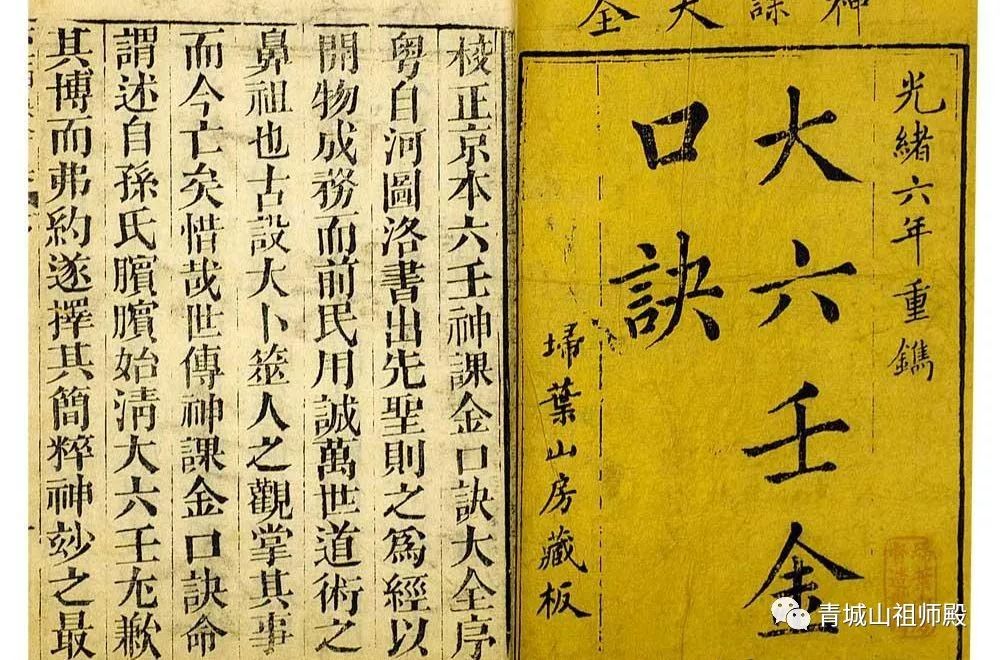 神課大全
光緒六年重鐫
大六壬金
口訣
埽葉山房藏板
校正京本六壬神課金口訣大全序
粵自河圖洛書出先聖則之爲經以
開物成務而前民用誠萬世道術之
鼻祖也古設大卜筮人之觀掌其事
而今亡矣惜哉世傳神課金口訣命
謂述自孫氏臏臏始清大六壬尢歉
其博而弗約遂擇其簡粹神玅之最
青城山祖师殿